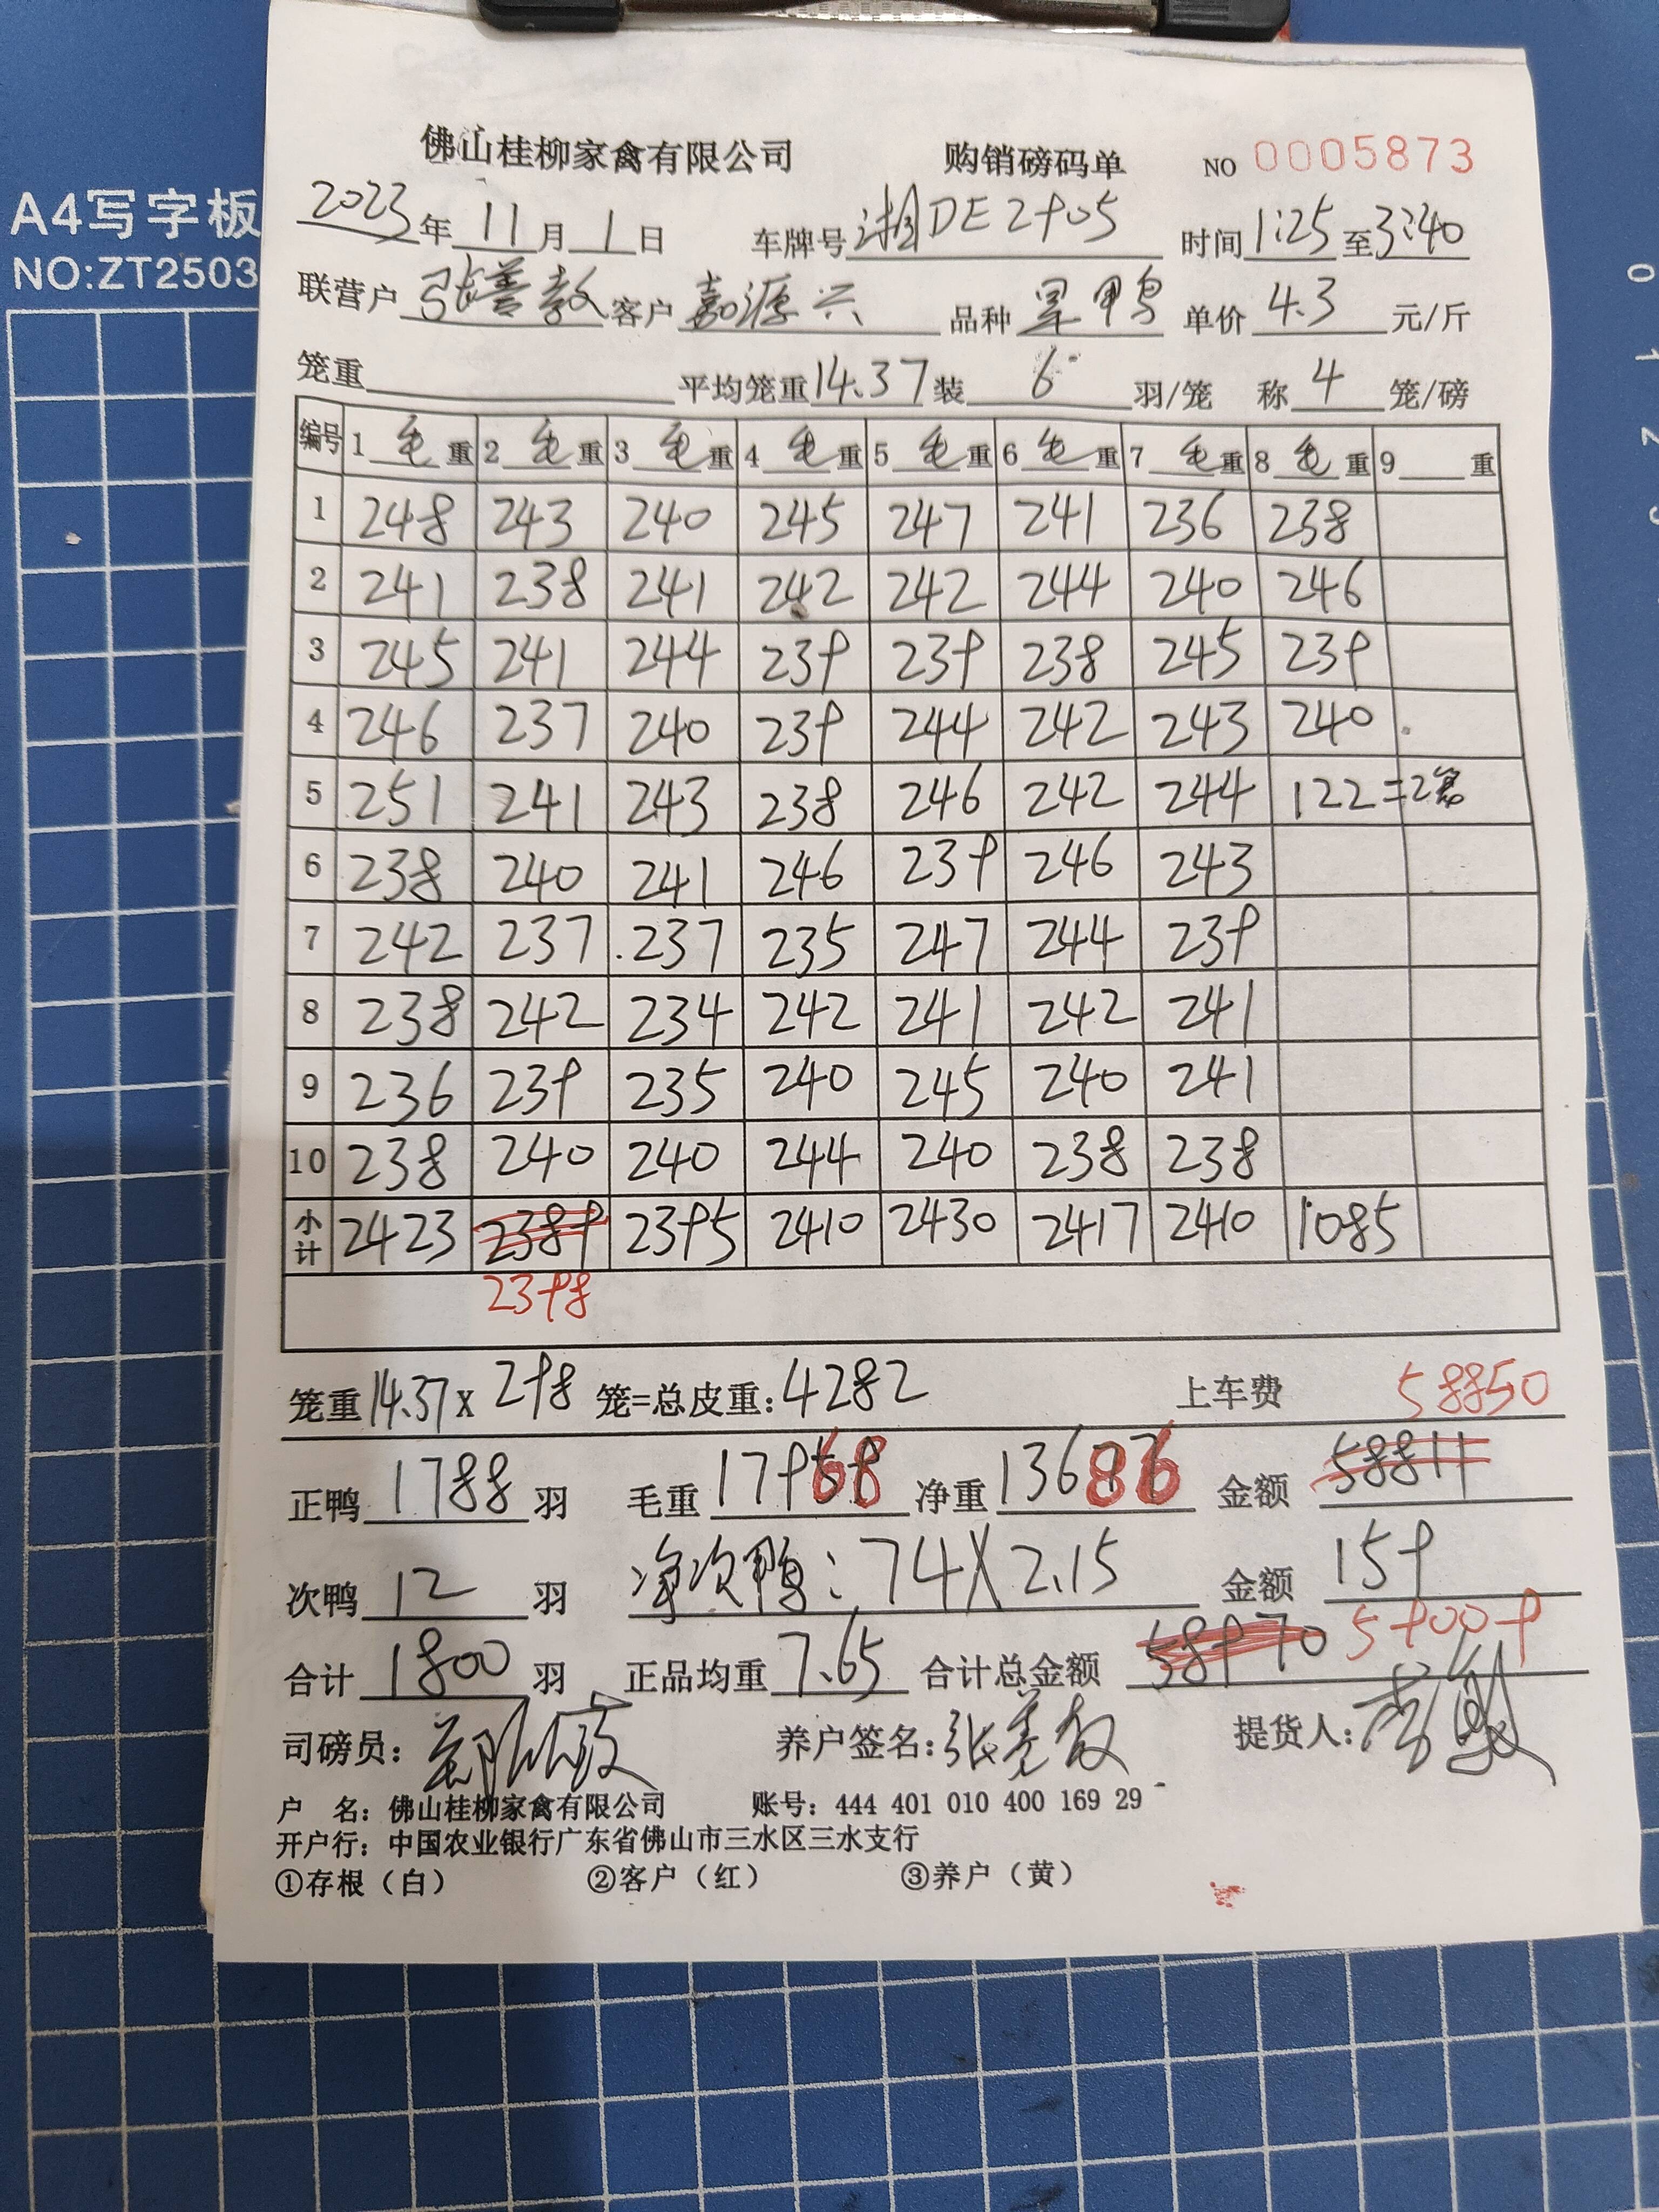 佛山桂柳家禽有限公司 购销磅码单 NO 0005873
A4写字板
NO:ZT2503
2023年11月1日 车牌号湘DE2905 时间1:25至3:40
联营户张善教 客户嘉源兴 品种旱鸭 单价4.3元/斤
笼重 平均笼重14.37装6羽/笼 称4笼/磅
编号 1毛重 2毛重 3毛重 4毛重 5毛重 6毛重 7毛重 8毛重 9重
1 248 243 240 245 247 241 236 238
2 241 238 241 242 242 244 240 246
3 245 241 244 239 239 238 245 239
4 246 237 240 239 244 242 243 240
5 251 241 243 238 246 242 244 122=2笼
6 238 240 241 246 239 246 243
7 242 237 237 235 247 244 239
8 238 242 234 242 241 242 241
9 236 239 235 240 245 240 241
10 238 240 240 244 240 238 238
小计 2423 2389 2395 2410 2430 2417 2410 1085
2398
笼重14.37x298笼=总皮重:4282 上车费 58850
正鸭1788羽 毛重17968 净重13686 金额58811
次鸭12羽 净次鸭:74X2.15 金额159
合计1800羽 正品均重7.65 合计总金额58970 59009
司磅员: 养户签名:张善教 提货人:
户 名: 佛山桂柳家禽有限公司 账号: 444 401 010 400 169 29
开户行: 中国农业银行广东省佛山市三水区三水支行
①存根(白) ②客户(红) ③养户(黄)
0 1 2 3